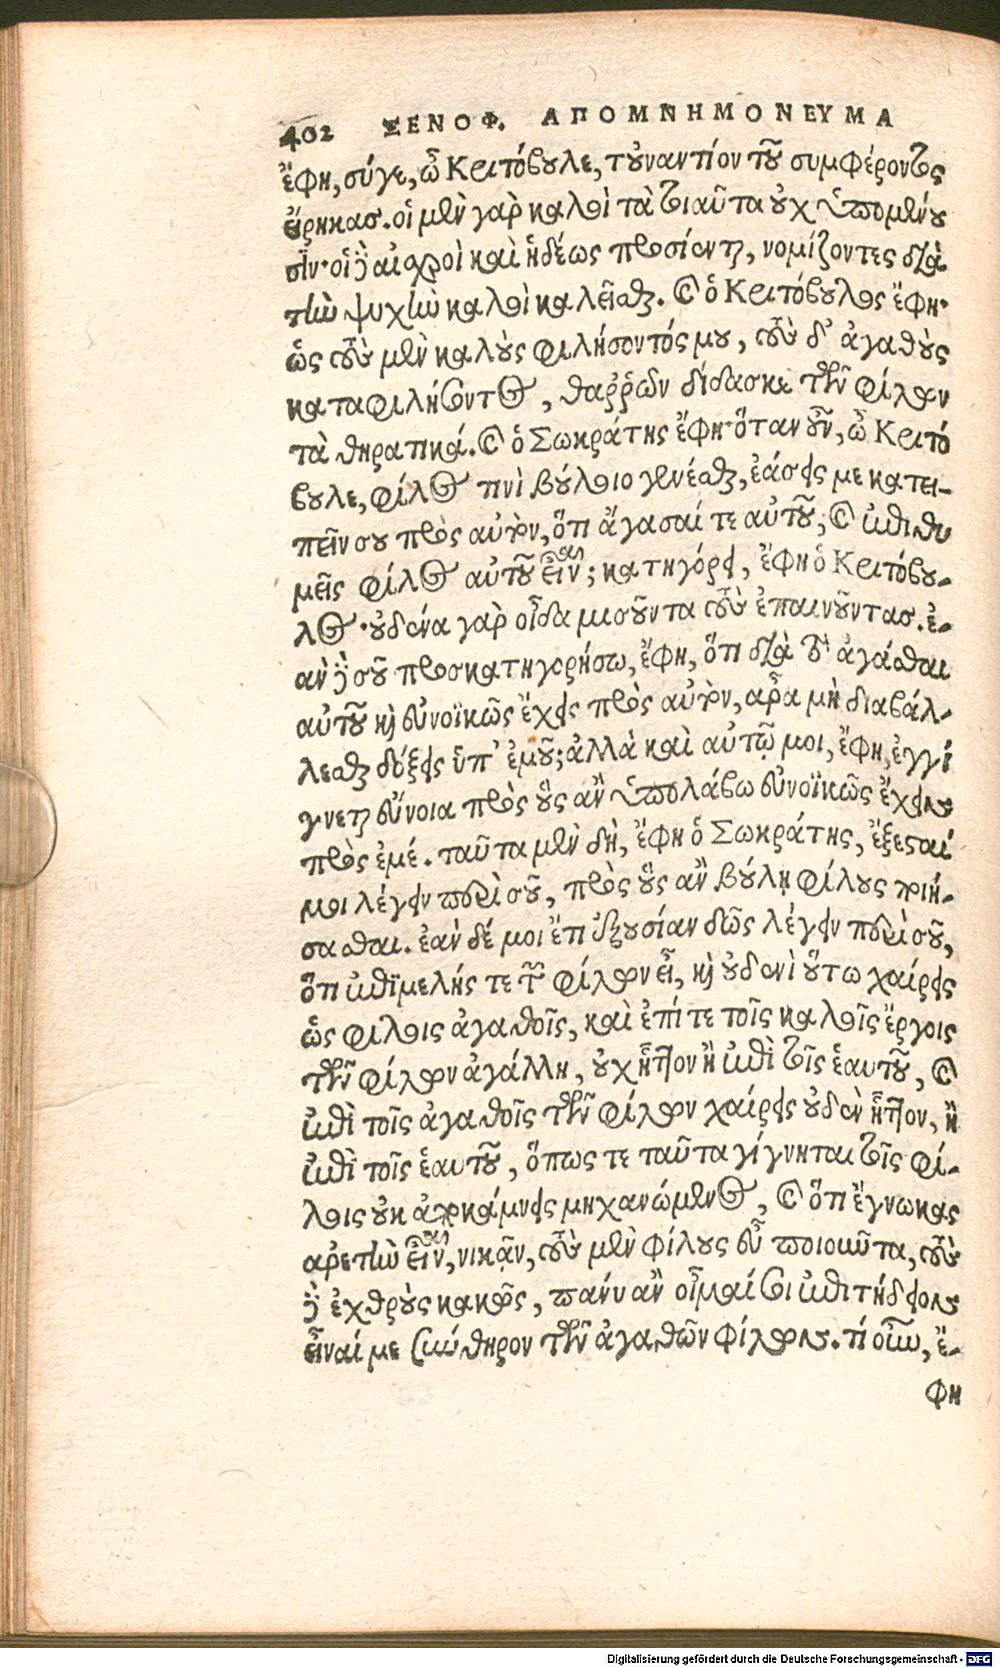 402 ΞΕΝΟΦ. ΑΠΟΜΝΗΜΟΝΕΥΜΑ
ἔφη, σύγε, ὦ Κριτόβουλε, τοὐναντίον τοῦ συμφέροντος
εἴρηκασ. οἱ μὲν γὰρ καλοὶ τὰ τοιαῦτα οὐχ ὑπομένου
σιν· οἱ δὲ αἰσχροὶ καὶ ἡδέως προσίενται, νομίζοντες διὰ
τὴν ψυχὴν καλοὶ καλεῖσθαι. καὶ ὁ Κριτόβουλος ἔφη·
ὡς τοὺς μὲν καλοὺς φιλήσοντός μου, τοὺς δ' ἀγαθοὺς
καταφιλήσοντος, θαῤῥῶν δίδασκε τῶν φίλων
τὰ θηρατικά. καὶ ὁ Σωκράτης ἔφη· ὅταν οὖν, ὦ Κριτό
βουλε, φίλος τινὶ βούλοιο γενέσθαι, ἐάσεις με κατει-
πεῖν σου πρὸς αὐτὸν, ὅτι ἄγασαί τε αὐτοῦ, καὶ ἐπιθυ
μεῖς φίλος αὐτοῦ εἶναι; κατηγόρει, ἔφη ὁ Κριτόβου-
λος· οὐδένα γὰρ οἶδα μισοῦντα τοὺς ἐπαινοῦντασ. ἐ-
ὰν δὲ σοῦ προσκατηγορήσω, ἔφη, ὅτι διὰ τὸ ἀγάσθαι
αὐτοῦ καὶ εὐνοϊκῶς ἔχεις πρὸς αὐτὸν, ἆρα μὴ διαβάλ-
λεσθαι δόξεις ὑπ' ἐμοῦ; ἀλλὰ καὶ αὐτῷ μοι, ἔφη, ἐγγί
γνεται εὔνοια πρὸς οὓς ἂν ὑπολάβω εὐνοϊκῶς ἔχειν
πρὸς ἐμέ. ταῦτα μὲν δὴ, ἔφη ὁ Σωκράτης, ἔξεσταί
μοι λέγειν περὶ σοῦ, πρὸς οὓς ἂν βούλῃ φίλους ποιή-
σασθαι. ἐὰν δέ μοι ἔτι ἐξουσίαν δῶς λέγειν περὶ σοῦ,
ὅτι ἐπιμελής τε τῶν φίλων εἶ, καὶ οὐδενὶ οὕτω χαίρεις
ὡς φίλοις ἀγαθοῖς, καὶ ἐπί τε τοῖς καλοῖς ἔργοις
τῶν φίλων ἀγάλλῃ, οὐχ ἧττον ἢ ἐπὶ τοῖς ἑαυτοῦ, καὶ
ἐπὶ τοῖς ἀγαθοῖς τῶν φίλων χαίρεις οὐδὲν ἧττον, ἢ
ἐπὶ τοῖς ἑαυτοῦ, ὅπως τε ταῦτα γίγνηται τοῖς φί-
λοις οὐκ ἀποκάμνεις μηχανώμενος, καὶ ὅτι ἔγνωκας
ἀρετὴν εἶναι, νικᾷν, τοὺς μὲν φίλους εὖ ποιοῦντα, τοὺς
δὲ ἐχθροὺς κακῶς, πάνυ ἂν οἶμαί σοι ἐπιτήδειον
εἶναί με σύνθηρον τῶν ἀγαθῶν φίλων. τί οὖν, ἔ-
φη
Digitalisierung gefördert durch die Deutsche Forschungsgemeinschaft - DFG